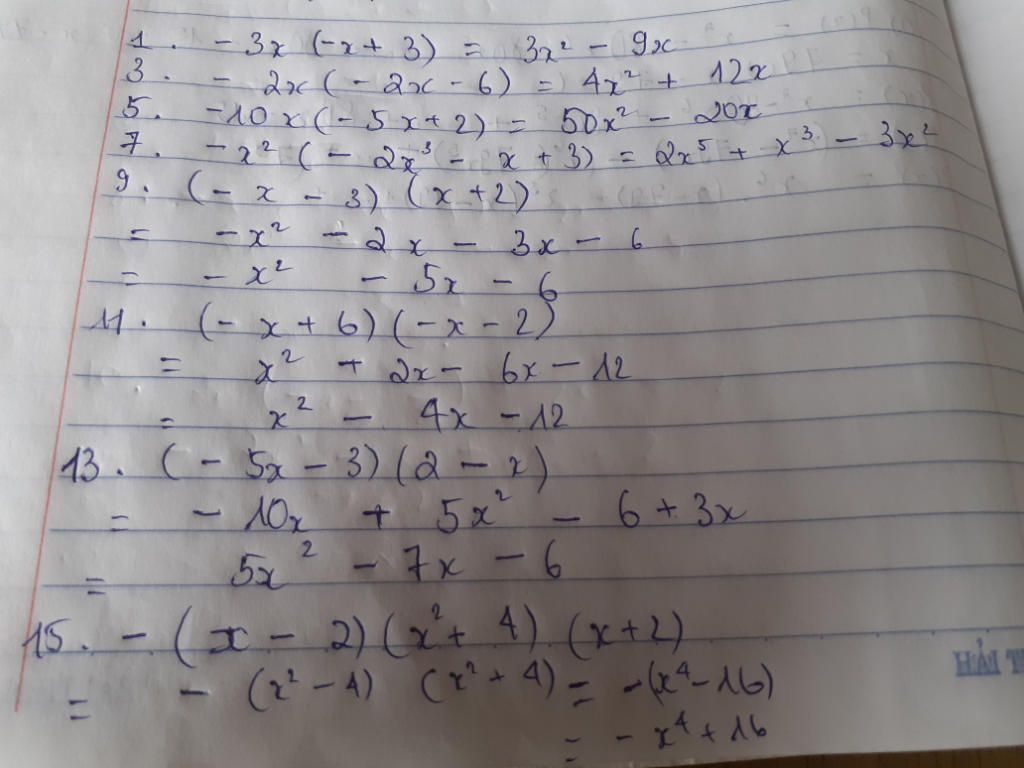 1. - 3x (-x + 3) = 3x² - 9x
3. - 2x (- 2x - 6) = 4x² + 12x
5. -10x (- 5x + 2) = 50x² - 20x
7. - x² (- 2x³ - x + 3) = 2x⁵ + x³ - 3x²
9. (- x - 3) (x + 2)
= - x² - 2x - 3x - 6
= - x² - 5x - 6
11. (- x + 6) (- x - 2)
= x² + 2x - 6x - 12
= x² - 4x - 12
13. (- 5x - 3) (2 - x)
= - 10x + 5x² - 6 + 3x
= 5x² - 7x - 6
15. - (x - 2) (x² + 4) (x + 2)
= - (x² - 4) (x² + 4) = - (x⁴ - 16)
= - x⁴ + 16
HẢI